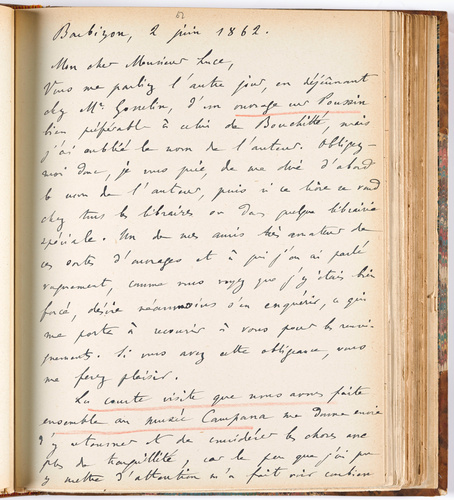 Barbizon, 2 juin 1862.
Mon cher Monsieur Luce,
Vous me parliez l'autre jour, en déjeûnant
chez Mr Gosselin, d'un ouvrage sur Poussin
bien préférable à celui de Bouchitté, mais
j'ai oublié le nom de l'auteur. Obligez-
moi donc, je vous prie, de me dire d'abord
le nom de l'auteur, puis si ce livre se vend
chez tous les libraires ou dans quelque librairie
spéciale. Un de mes amis très amateur de
ces sortes d'ouvrages et à qui j'en ai parlé
vaguement, comme vous voyez que j'y étais bien
forcé, désire néanmoins s'en enquérir, ce qui
me porte à recourir à vous pour les rensei-
gnements. Si vous avez cette obligeance, vous
me ferez plaisir.
La courte visite que nous avons faite
ensemble au musée Campana me donne envie
d'y retourner et de considérer les choses avec
plus de tranquillité, car le peu que j'ai pu
y mettre d'attention m'a fait voir combien